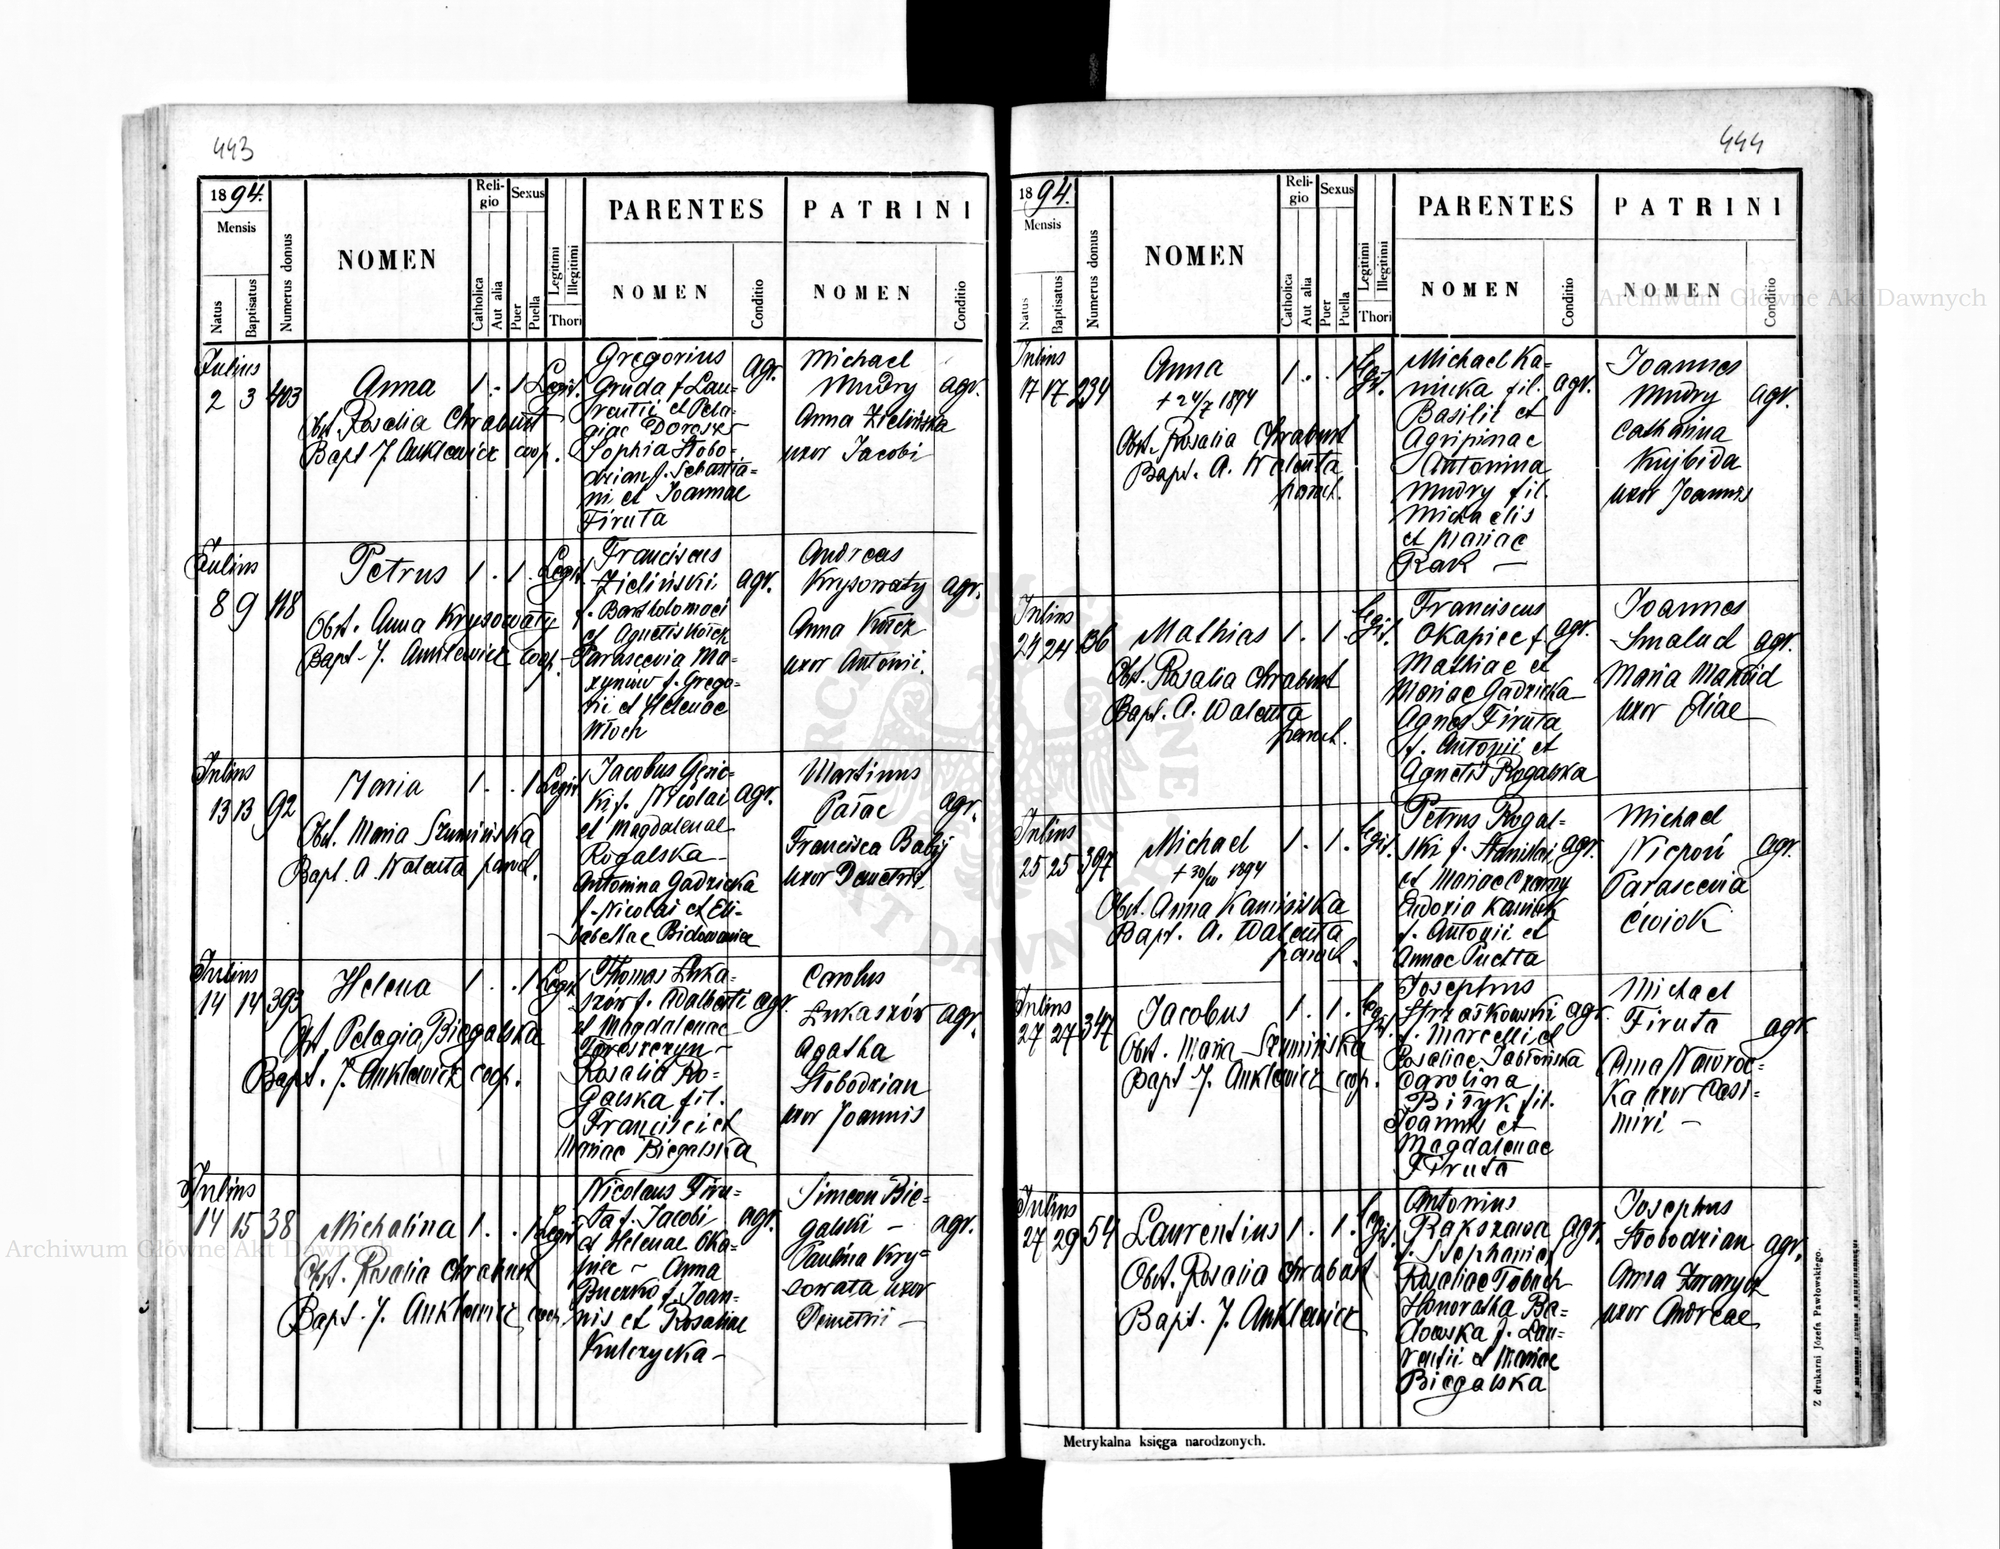 443
1894.
Mensis
Natus
Baptisatus
Numerus domus
NOMEN
Reli-
gio
Catholica
Aut alia
Sexus
Puer
Puella
Legitimi
Illegitimi
Thori
PARENTES
NOMEN
Conditio
PATRINI
NOMEN
Conditio
Julius
2 3 403
Anna
1 . . 1 Legit.
Obst. Rosalia Chrabust
Bapt J. Anklewicz coop.
Gregorius
Gruda f. Lau-
rentii et Pela-
giae
Sophia Słobo-
drian f. Sebastia-
ni et Joannae
Firuta
agr.
Michael
Mudry
Anna Zielińska
uxor Jacobi
agr.
Julius
8 9 118
Petrus
1 . 1 . Legit.
Obst. Anna Krysowaty
Bapt. J. Anklewicz coop.
Franciscus
Zieliński
f. Bartholomaei
et Agnetis Kotek
Parascevia Ma-
zynow f. Grego-
rii et Helenae
Włoch
agr.
Andreas
Krysowaty
Anna
uxor Antonii.
agr.
Julius
13 13 92
Maria
1 . . 1 Legit
Obst. Maria Szumińska
Bapt. A. Walenta paroch.
Jacobus Geric-
ki f. Nicolai
et Magdalenae
Rogalska
Antonina Gadzicka
f. Nicolai et Eli-
sabethae
agr.
Martinus
Pałac
Francisca Babij
uxor Demetrii
agr.
Julius
14 14 393
Helena
1 . . 1 Legit
Obst. Pelagia Biegalska
Bapt. J. Anklewicz coop.
Thomas Łuka-
szów f. Adalberti
et Magdalenae
Toroszczyn
Rosalia Ro-
galska fil.
Francisci et
Mariae Biegalska
agr.
Carolus
Łukaszów
Agatha
Słobodzian
uxor Joannis
agr.
Julius
14 15 38
Michalina
1 . . 1 Legit
Obst. Rosalia Chrabust
Bapt. J. Anklewicz coop.
Nicolaus Firu-
ta f. Jacobi
et Helenae Oka-
piec - Anna
Buczko f. Joan-
nis et Rosaliae
Kulczycka -
agr.
Simeon Bie-
galski -
Paulina Kry-
sowata uxor
Demetrii -
agr.
444
1894.
Mensis
Natus
Baptisatus
Numerus domus
NOMEN
Reli-
gio
Catholica
Aut alia
Sexus
Puer
Puella
Legitimi
Illegitimi
Thori
PARENTES
NOMEN
Conditio
PATRINI
NOMEN
Conditio
Julius
17 17 234
Anna
+ 24/7 1894
1 . . 1 Legit.
Obst. Rosalia Chrabust
Bapt. A. Walenta
paroch.
Michael Ka-
nicka fil.
Basilii et
Agripinae
Antonina
Mudry fil.
Michaelis
et Mariae
Rak -
agr.
Joannes
Mudry
Catharina
Kujbida
uxor Joannis
agr.
Julius
24 36
Mathias
1 . 1 . Legit.
Obst. Rosalia Chrabust
Bapt. A. Walenta
paroch.
Franciscus
Okapiec f.
Mathiae et
Mariae Gadzicka
Agnes Firuta
f. Antonii et
Agnetis Rogalska
agr.
Joannes
Smalud
Maria
uxor Eliae
agr.
Julius
25 25 397
Michael
+ 30/10 1894
1 . 1 . Legit.
Obst. Anna Kamińska
Bapt. A. Walenta
paroch.
Petrus Rogal-
ski f. Stanislai
et Mariae Czarny
Eudoxia
f. Antonii et
Annae Puchta
agr.
Michael
Niepoń
Parascevia
Ćwiok
agr.
Julius
27 27 347
Jacobus
1 . 1 . Legit.
Obst. Maria Szumińska
Bapt J. Anklewicz coop.
Josephus
Strzałkowski
f. Marcelli et
Rosaliae Jabłońska
Carolina
Biłyk fil.
Joannis et
Magdalenae
Firuta
agr.
Michael
Firuta
Anna Nawroc-
ka uxor Casi-
miri -
agr.
Julius
27 29 54
Laurentius
1 . 1 . Legit.
Obst. Rosalia Chrabust
Bapt. J. Anklewicz
Antonius
Rakszawa
f. Stephani et
Rosaliae
Honoratha Ba-
dowska f. Lau-
rentii et Mariae
Biegalska
agr.
Josephus
Słobodzian
Anna Zwarycz
uxor Andreae
agr.
Metrykalna księga narodzonych.
Z drukarni Józefa Pawłowskiego.
Archiwum Główne Akt Dawnych
Archiwum Główne Akt Dawnych